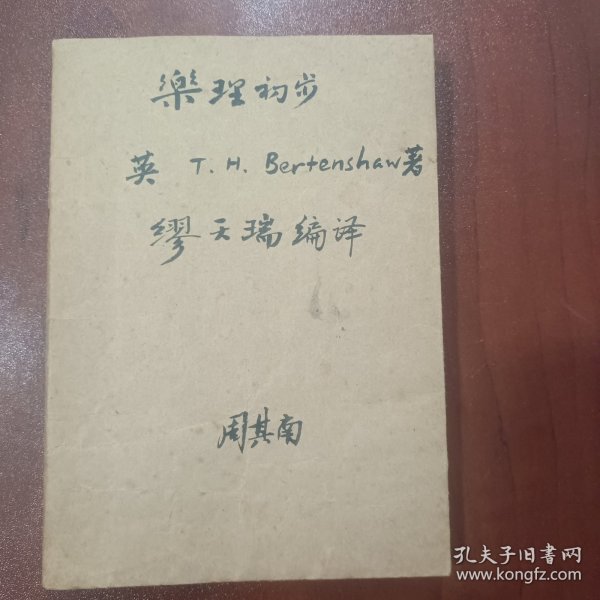 樂理初步
英 T. H. Bertenshaw著
缪天瑞编译
周其南
孔夫子旧書网
www.kongfz.com